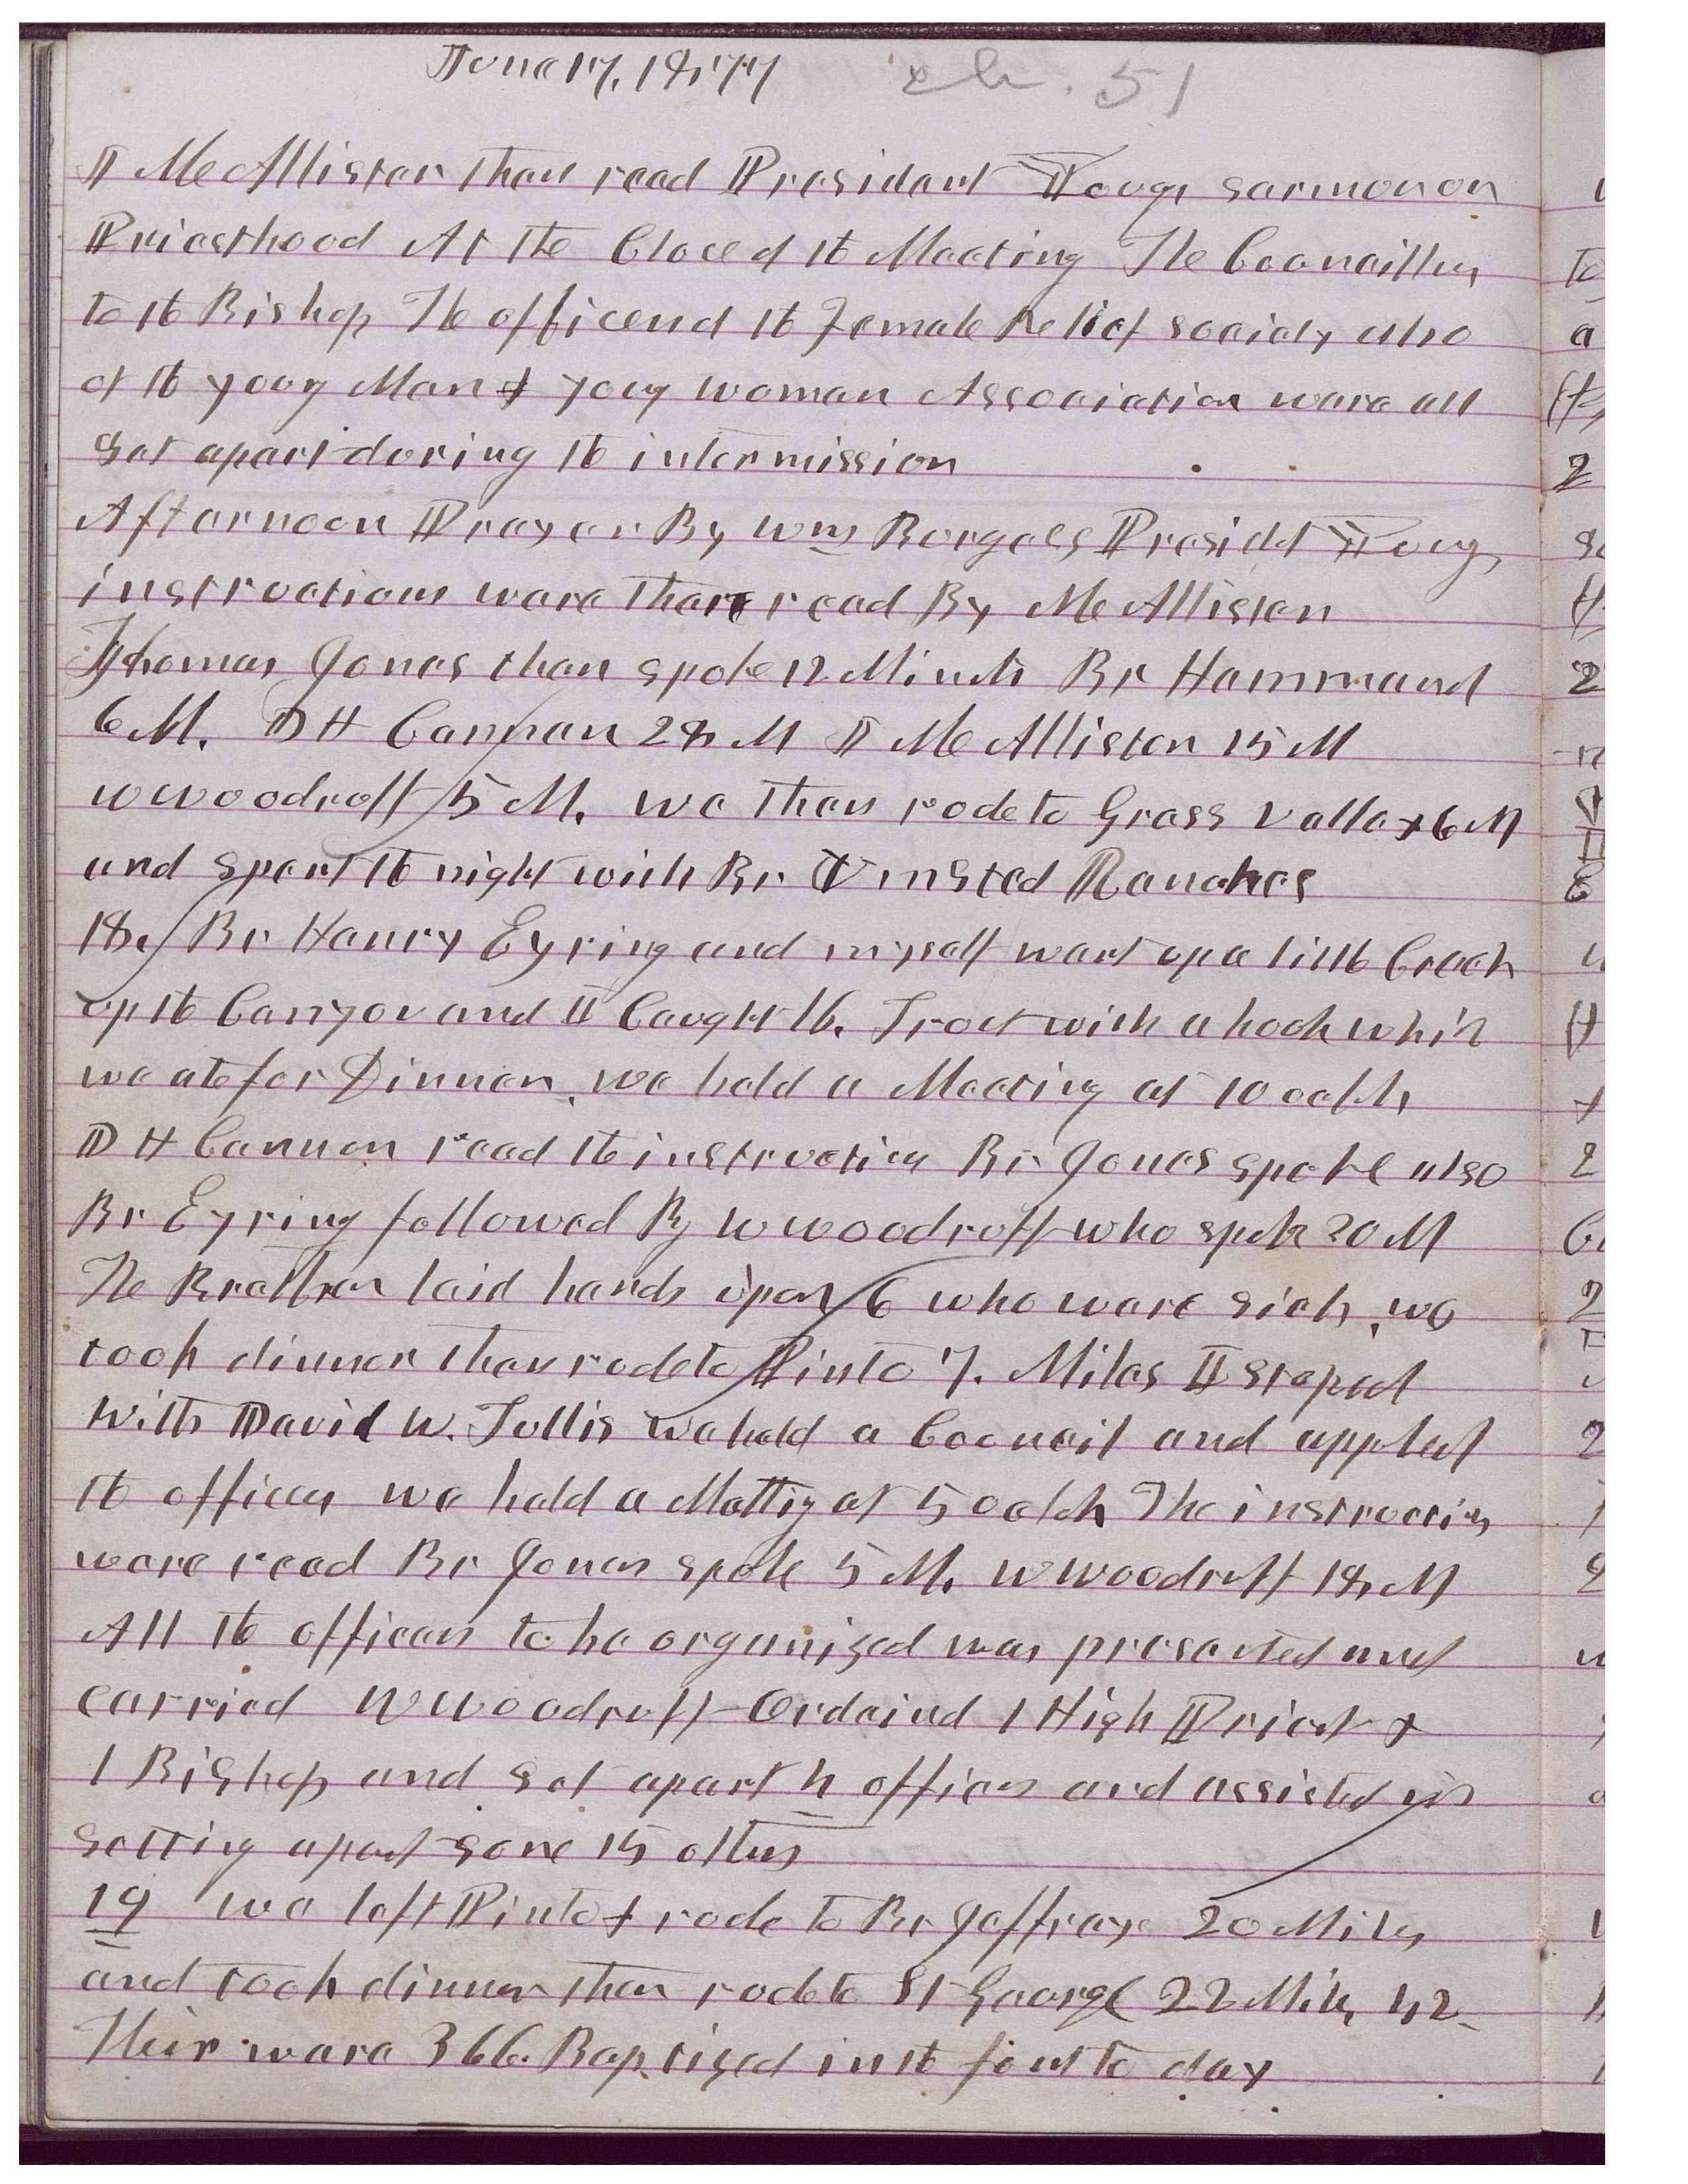 June 17, 1877 ch. 51
J McAllister then read President Youngs sermon on
Priesthood At the Close of the Meeting The Councillors
to the Bishop The officers of the Female Relief society also
of the young Men & young woman Association were all
set apart during the intermission
Afternoon Prayer By Wm Burgess Presidet Youngs
instructions were then read By McAllister
Thomas Jones then spoke 12 Minuts Br Hammond
6 M. D H Cannan 28 M J McAllister 15 M
W Woodruff 15 M. we then rode to Grass valley 6 M
and spent the night with Br
18. Br Henry Eyring and myself went up a little Creek
up the Canyon and I Caught 16. Trout with a hook which
we ate for Dinner, we held a Meeting at 10 oclk
D H Cannon read the instructions Br Jones spoke also
Br Eyring followed By W Woodruff who spoke 20 M
The Brethren laid hands upon 6 who were sick, we
took dinner then rode to Pinto 7. Miles I stoped
with David W. Tullis we held a Council and appted
the officers we held a Mettig at 5 oclok The instructions
were read Br Jones spoke 5 M. W Woodruff 18 M
All the officers to be organized was presented and
carried W Woodruff Ordaind 1 High Priest &
1 Bishop and set apart 4 officers and assisted in
setting apart some 15 others
19 we left Pinto & rode to Br Jeffreys 20 Miles
and took dinner then rode to St George 22 Mils 42
Their were 366. Baptized in the font to day